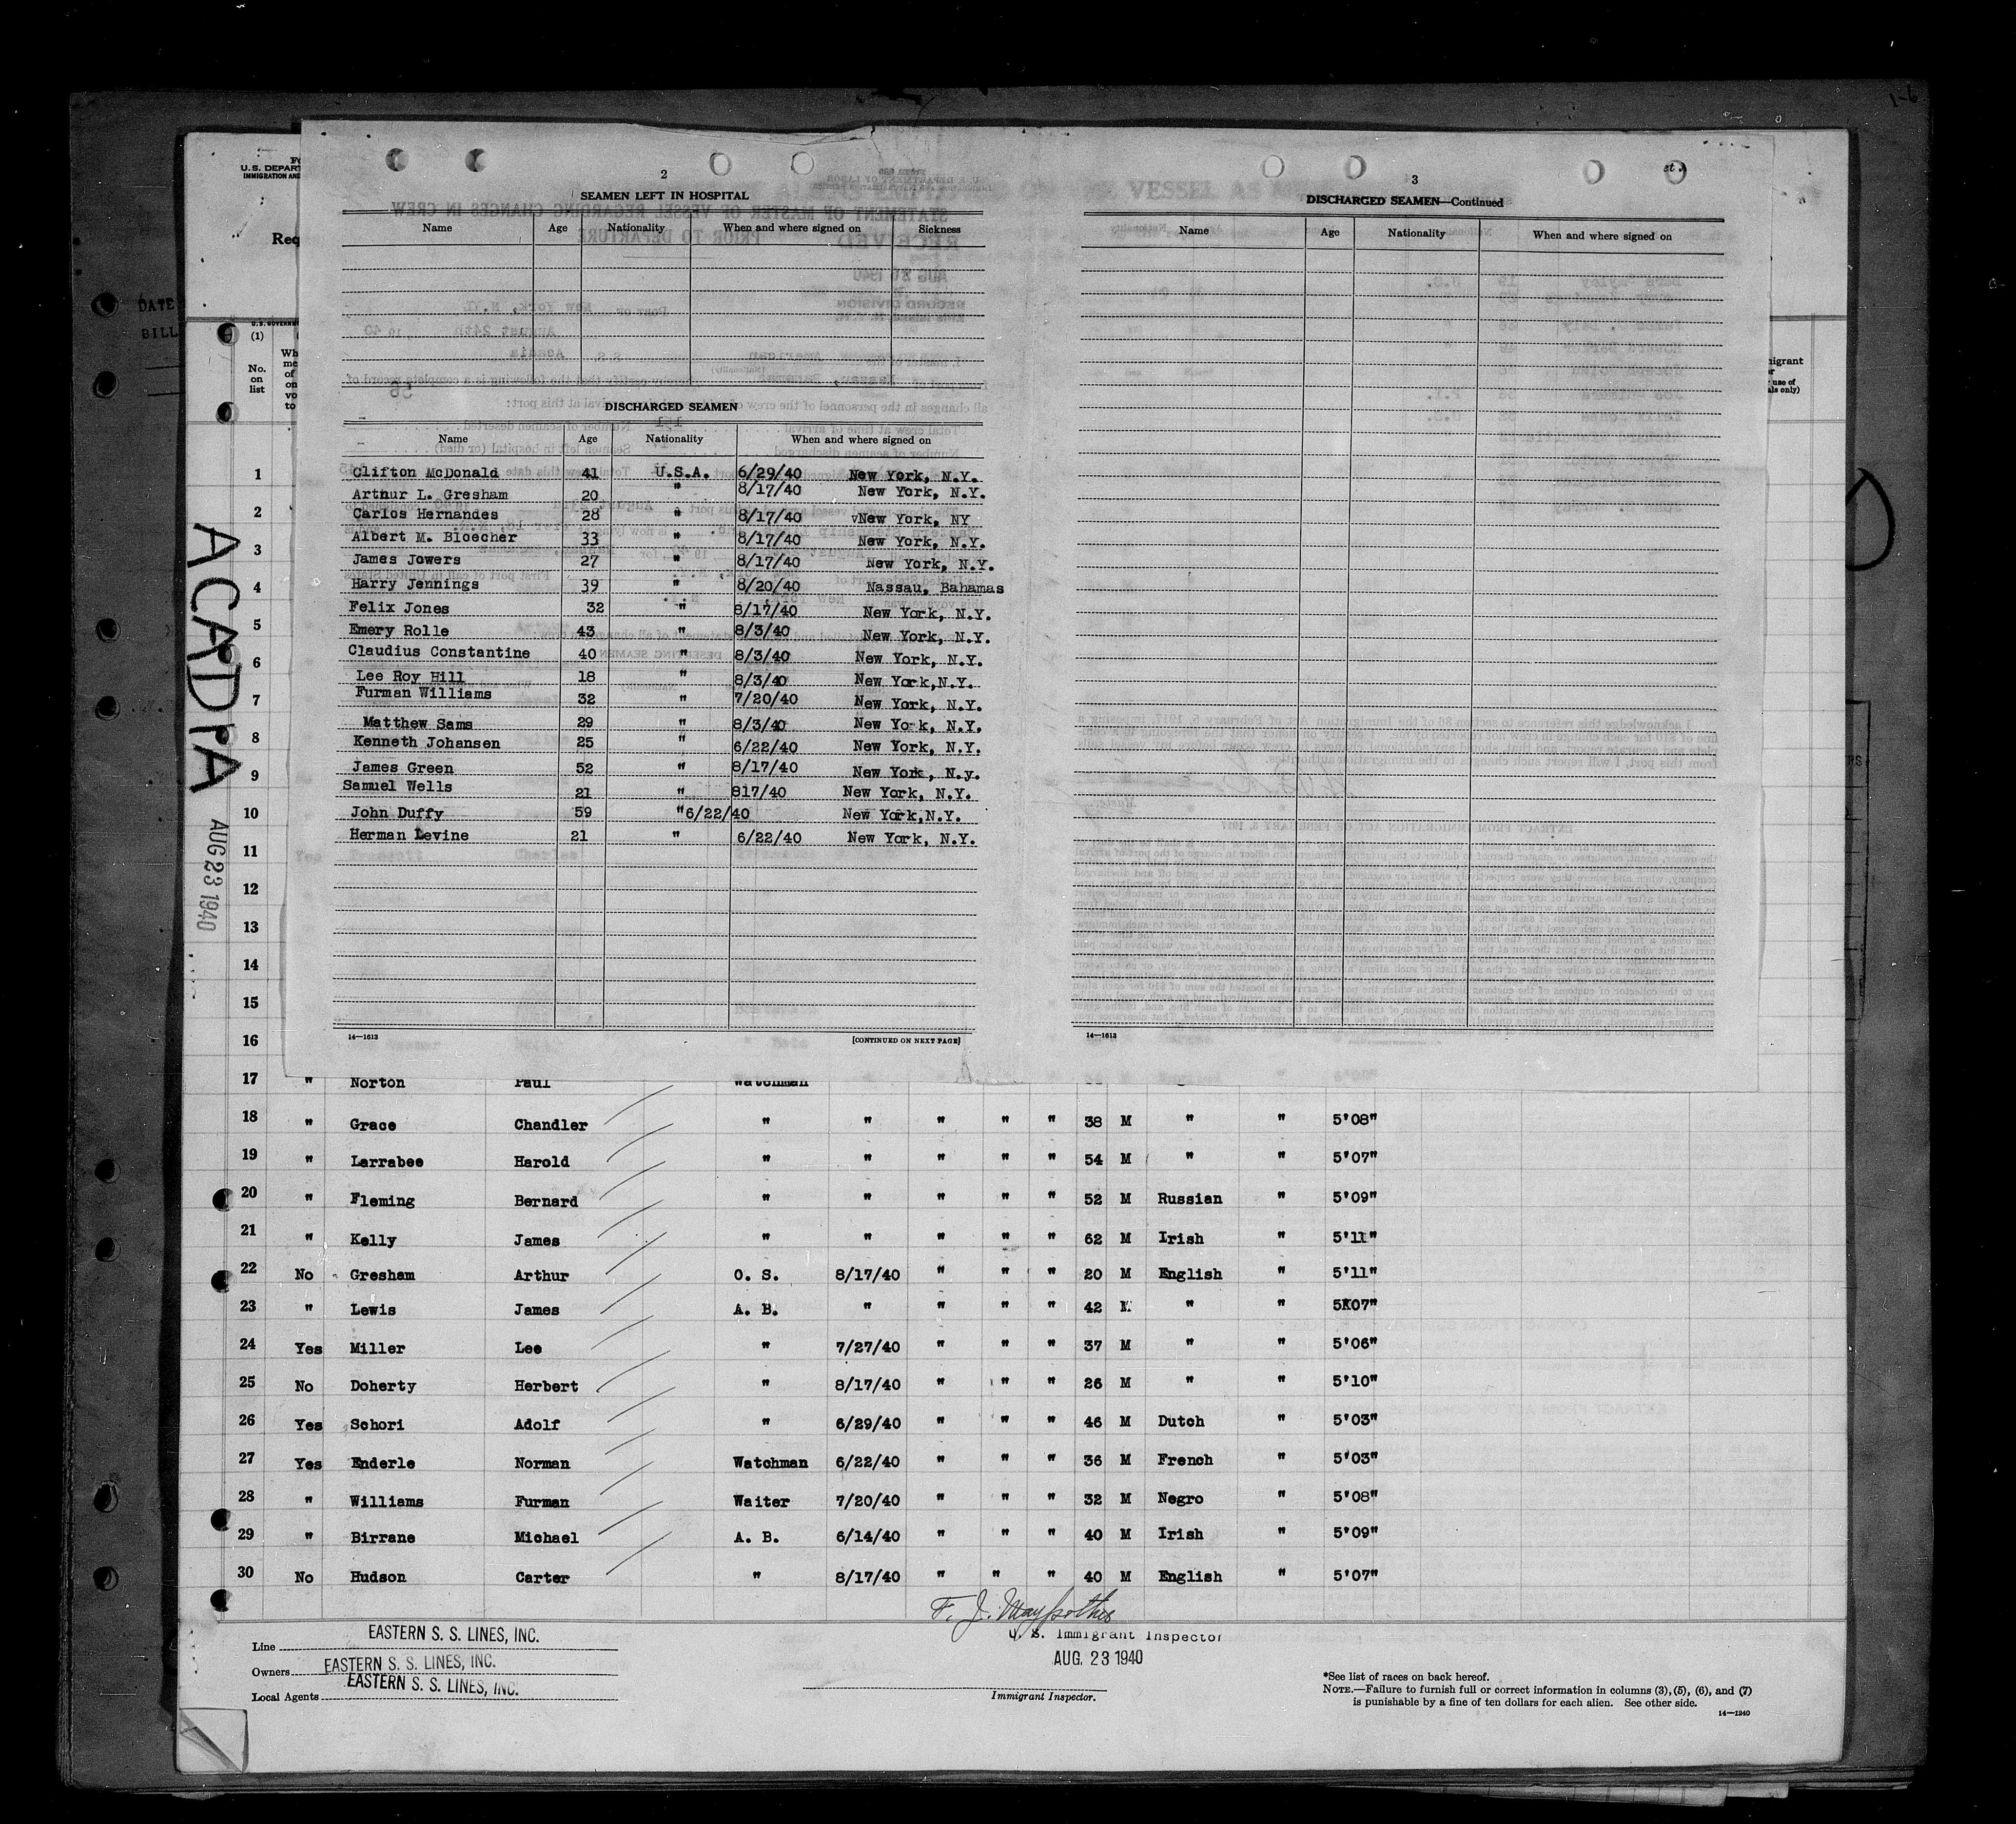 1-6
U.S. DEPAR
IMMIGRATION AND
Req
DATE
BILL
2
SEAMEN LEFT IN HOSPITAL
Name Age Nationality When and where signed on Sickness
DISCHARGED SEAMEN
Name Age Nationality When and where signed on
Clifton McDonald 41 U.S.A. 6/29/40 New York, N.Y.
Arthur L. Gresham 20 " 8/17/40 New York, N.Y.
Carlos Hernandes 28 " 8/17/40 vNew York, NY
Albert M. Bloecher 33 " 8/17/40 New York, N.Y.
James Jowers 27 " 8/17/40 New York, N.Y.
Harry Jennings 39 " 8/20/40 Nassau, Bahamas
Felix Jones 32 " 8/17/40 New York, N.Y.
Emery Rolle 43 " 8/3/40 New York, N.Y.
Claudius Constantine 40 " 8/3/40 New York, N.Y.
Lee Roy Hill 18 " 8/3/40 New York,N.Y.
Furman Williams 32 " 7/20/40 New York, N.Y.
Matthew Sams 29 " 8/3/40 New York, N.Y.
Kenneth Johansen 25 " 6/22/40 New York, N.Y.
James Green 52 " 8/17/40 New York, N.y.
Samuel Wells 21 " 817/40 New York, N.Y.
John Duffy 59 "6/22/40 New York,N.Y.
Herman Levine 21 " 6/22/40 New York, N.Y.
14—1613 [CONTINUED ON NEXT PAGE]
3
DISCHARGED SEAMEN—Continued
Name Age Nationality When and where signed on
14—1613
ACADIA AUG 23 1940
(1)
No.
on
list
1
2
3
4
5
6
7
8
9
10
11
12
13
14
15
16
17 " Norton Paul Watchman
18 " Grace Chandler " " " " " 38 M " " 5'08"
19 " Larrabee Harold " " " " " 54 M " " 5'07"
20 " Fleming Bernard " " " " " 52 M Russian " 5'09"
21 " Kelly James " " " " " 62 M Irish " 5'11"
22 No Gresham Arthur O. S. 8/17/40 " " " 20 M English " 5'11"
23 " Lewis James A. B. " " " " 42 M " " 5X07"
24 Yes Miller Lee " 7/27/40 " " " 37 M " " 5'06"
25 No Doherty Herbert " 8/17/40 " " " 26 M " " 5'10"
26 Yes Schori Adolf " 6/29/40 " " " 46 M Dutch " 5'03"
27 Yes Enderle Norman Watchman 6/22/40 " " " 36 M French " 5'03"
28 " Williams Furman Waiter 7/20/40 " " " 32 M Negro " 5'08"
29 " Birrane Michael A. B. 6/14/40 " " " 40 M Irish " 5'09"
30 No Hudson Carter " 8/17/40 " " " 40 M English " 5'07"
Line EASTERN S. S. LINES, INC.
Owners EASTERN S. S. LINES, INC.
Local Agents EASTERN S. S. LINES, INC.
U. S. Immigrant Inspector
AUG. 23 1940
Immigrant Inspector.
*See list of races on back hereof.
NOTE.—Failure to furnish full or correct information in columns (3), (5), (6), and (7)
is punishable by a fine of ten dollars for each alien. See other side.
14—1240